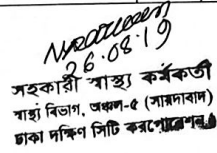 26.08.19
সহকারী স্বাস্থ্য কর্মকর্তা
স্বাস্থ্য বিভাগ, অঞ্চল-৫ (সায়দাবাদ)
ঢাকা দক্ষিণ সিটি করপোরেশন